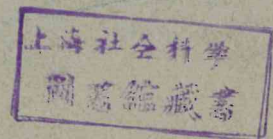 上海社会科学
圖書館藏書